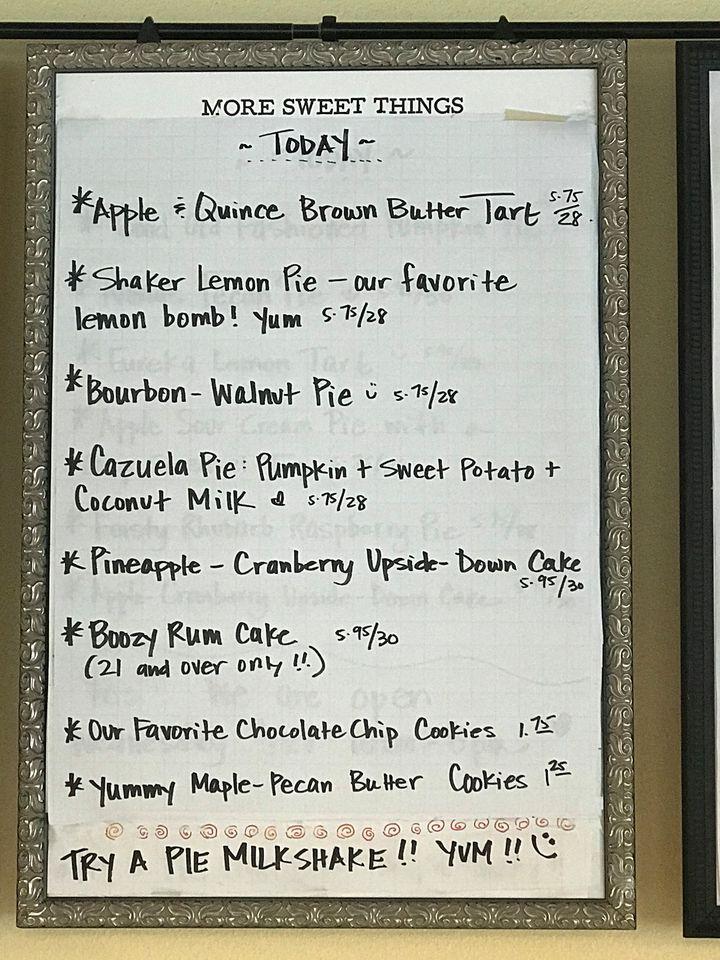 MORE SWEET THINGS
~ TODAY ~
* Apple & Quince Brown Butter Tart 5.75/28.
* Shaker Lemon Pie - our favorite
lemon bomb! Yum 5.75/28
* Bourbon-Walnut Pie 5.75/28
* Cazuela Pie: Pumpkin + Sweet Potato +
Coconut Milk 5.75/28
* Pineapple - Cranberry Upside-Down Cake
5.95/30
* Boozy Rum Cake 5.95/30
(21 and over only!!)
* Our Favorite Chocolate Chip Cookies 1.75
* Yummy Maple-Pecan Butter Cookies 1 25
TRY A PIE MILKSHAKE!! YUM!!